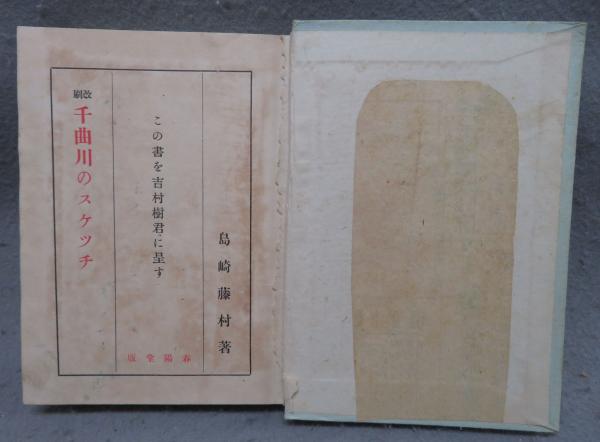 島崎藤村著
この書を吉村樹君に呈す
改刷
千曲川のスケッチ
春陽堂版